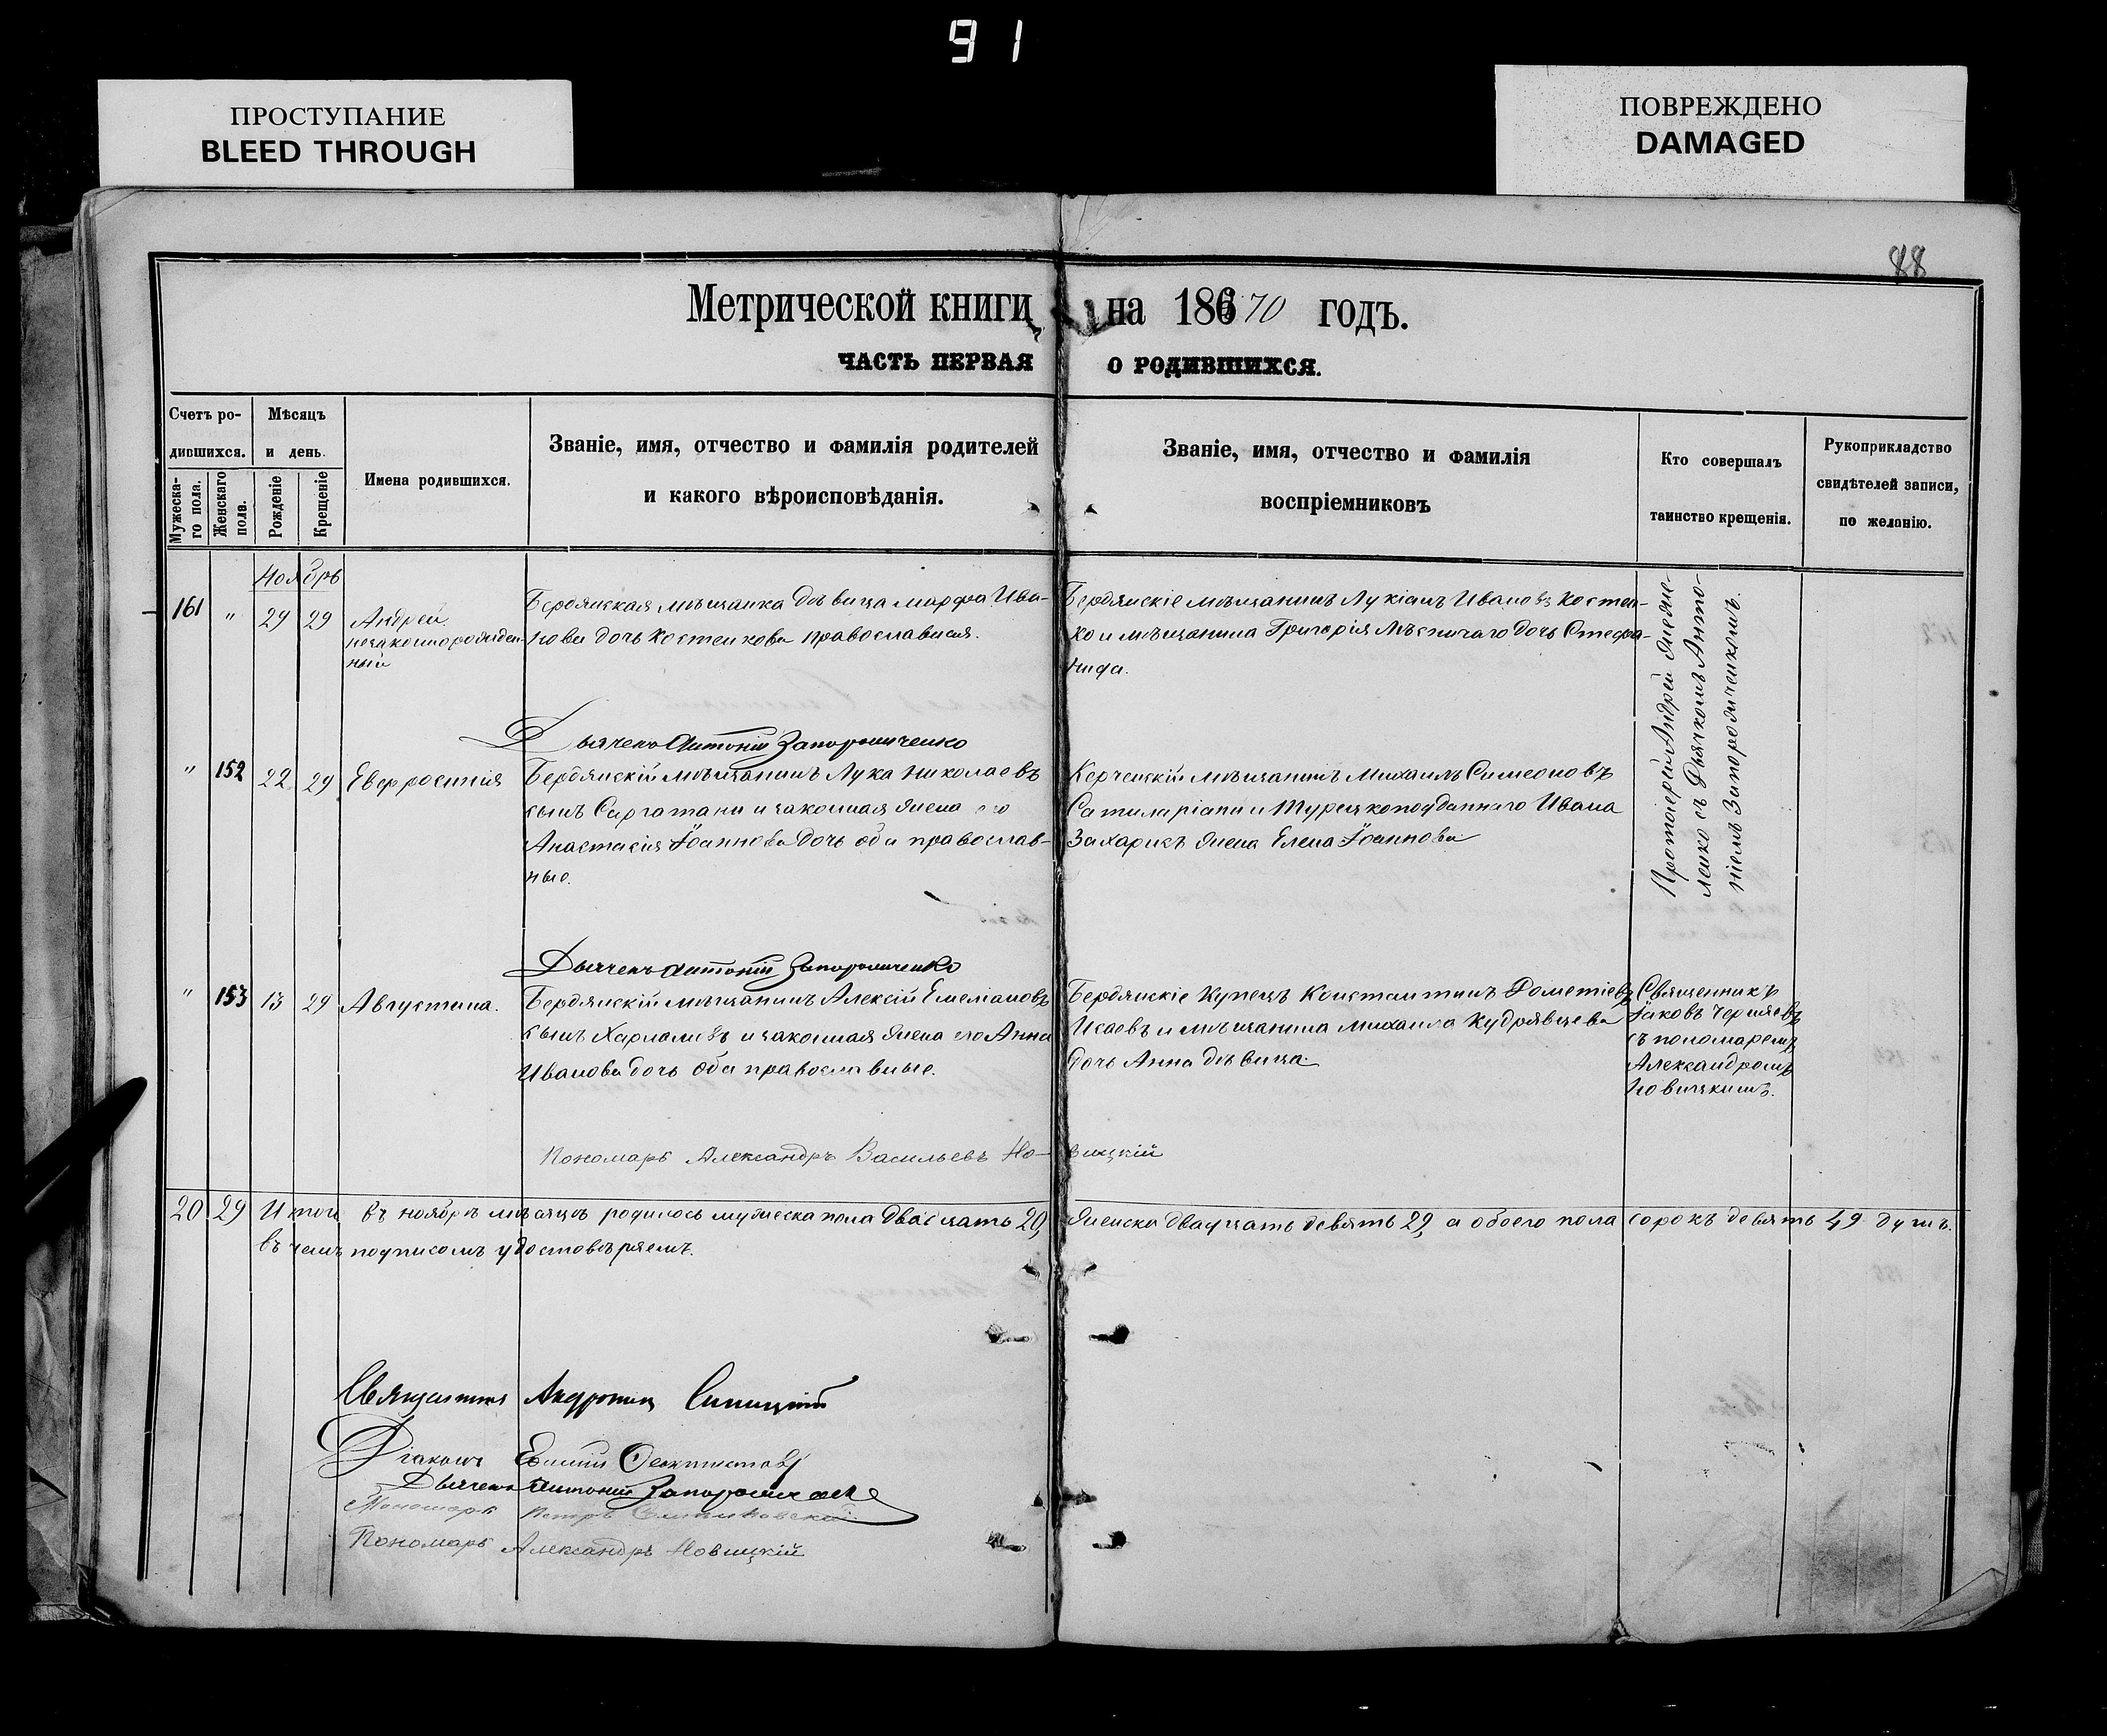 91
ПРОСТУПАНИЕ
BLEED THROUGH
ПОВРЕЖДЕНО
DAMAGED
88
Метрической книги на 18670 годъ.
ЧАСТЬ ПЕРВАЯ О РОДИВШИХСЯ.
Счетъ ро-
дившихся.
Мужеска-
го пола.
Женскаго
пола.
Мѣсяцъ
и день.
Рожденіе
Крещеніе
Имена родившихся.
Званіе, имя, отчество и фамилія родителей
и какого вѣроисповѣданія.
Званіе, имя, отчество и фамилія
воспріемниковъ
Кто совершалъ
таинство крещенія.
Рукоприкладство
свидѣтелей записи,
по желанію.
Ноябрь
161 " 29 29 Андрей
незаконнорожден-
ный
Бердянская мѣщанка дѣвица Марфа Ива-
нова дочь Костенкова православная.
Бердянскіе мѣщанинъ Лукіанъ Ивановъ Костен-
ко и мѣщанина Григорія дочь Стефа-
нида.
Протоіерей Андрей
съ Дьячкомъ Анто-
ніемъ Запорожченкомъ.
Дьячекъ Антоній Запорожченко
" 152 22 29 Евфросинія
Бердянскій мѣщанинъ Лука Николаевъ
сынъ Саргатани и законная жена его
Анастасія Іоаннова дочь оба православ-
ные.
Керченскій мѣщанинъ Михаилъ Симеоновъ
и Турецкоподданнаго Ивана
жена Елена Іоаннова
Дьячекъ Антоній Запорожченко
" 153 13 29 Августина.
Бердянскій мѣщанинъ Алексій Емеліановъ
сынъ и законная жена его Анна
Иванова дочь оба православные.
Бердянскіе Купецъ Константинъ Дометіевъ
Исаевъ и мѣщанина Михаила Кудрявцева
дочь Анна дѣвица.
Священникъ
Іаковъ Черняевъ
съ пономаремъ
Александромъ
Новицкимъ.
Пономарь Александръ Васильевъ Но-
вицкій
20 29 Итого въ ноябрѣ мѣсяцѣ родилось мужеска пола двадцать 20, женска двадцать девять 29, а обоего пола сорокъ девять 49 душъ.
въ чемъ подписомъ удостовѣряемъ.
Священникъ Андроникъ Синицкій
Діаконъ Ефимій Феоктистовъ
Дьячекъ Антоній Запорожченко
Пономарь Петръ
Пономарь Александръ Новицкій